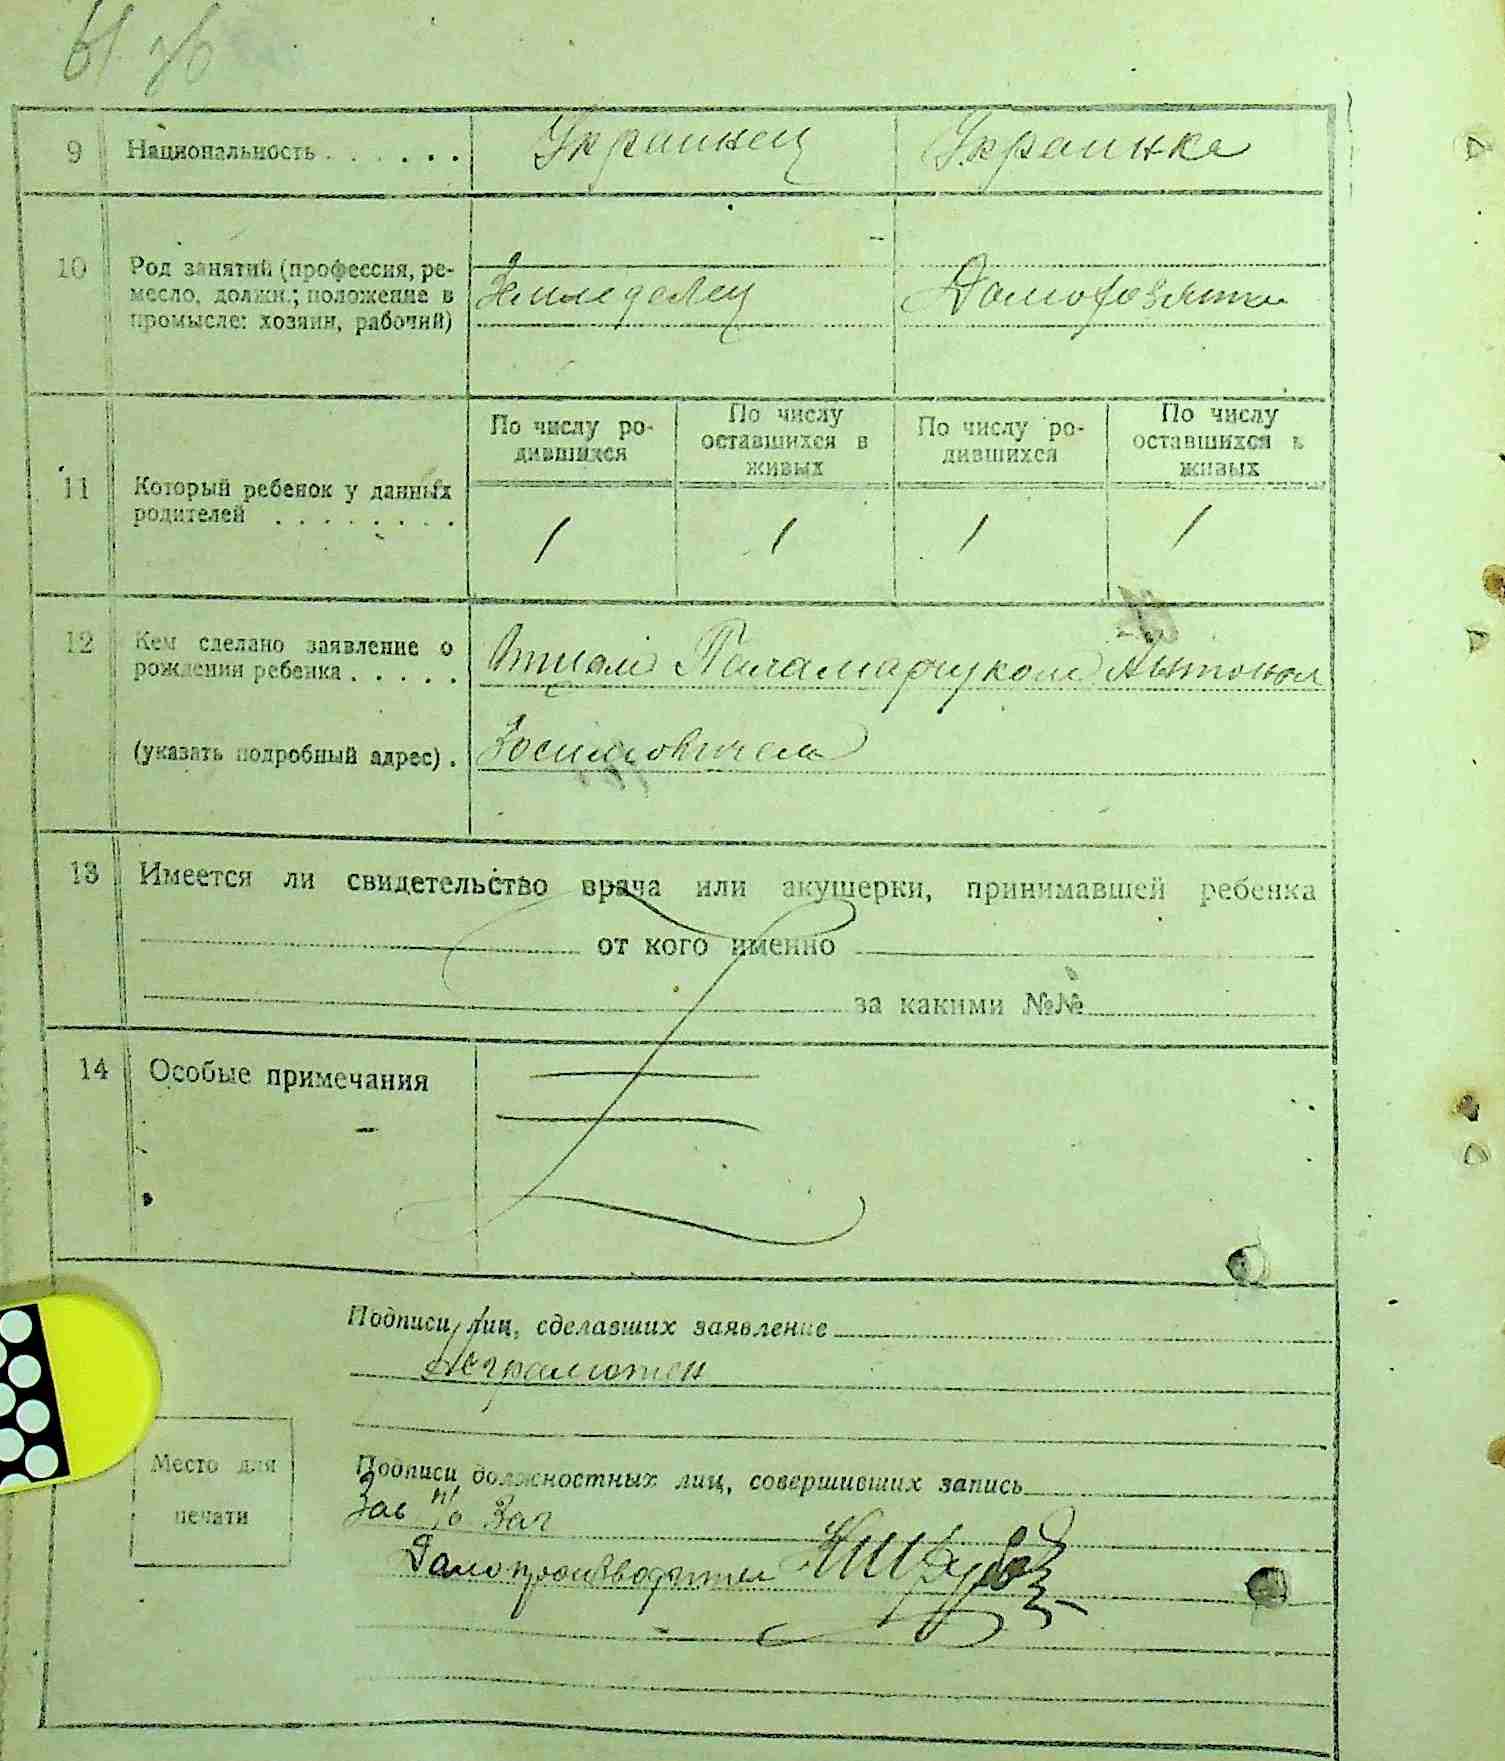 9 Национальность . . . . . . Украинец Украинка
10 Род занятий (профессия, ре-
месло, должн.; положение в
промысле: хозяин, рабочий)
Земледелец Домохозяйка
По числу ро-
дившихся
По числу
оставшихся в
живых
По числу ро-
дившихся
По числу
оставшихся в
живых
11 Который ребенок у данных
родителей . . . . . . . .
1 1 1 1
12 Кем сделано заявление о
рождении ребенка . . . . .
Отцом Паламарчуком Антоном
(указать подробный адрес) . Зосимовичем
13 Имеется ли свидетельство врача или акушерки, принимавшей ребенка
от кого именно
за какими №№
14 Особые примечания
Подписи лиц, сделавших заявление
Неграмотен
Место для
печати
Подписи должностных лиц, совершивших запись
Зав